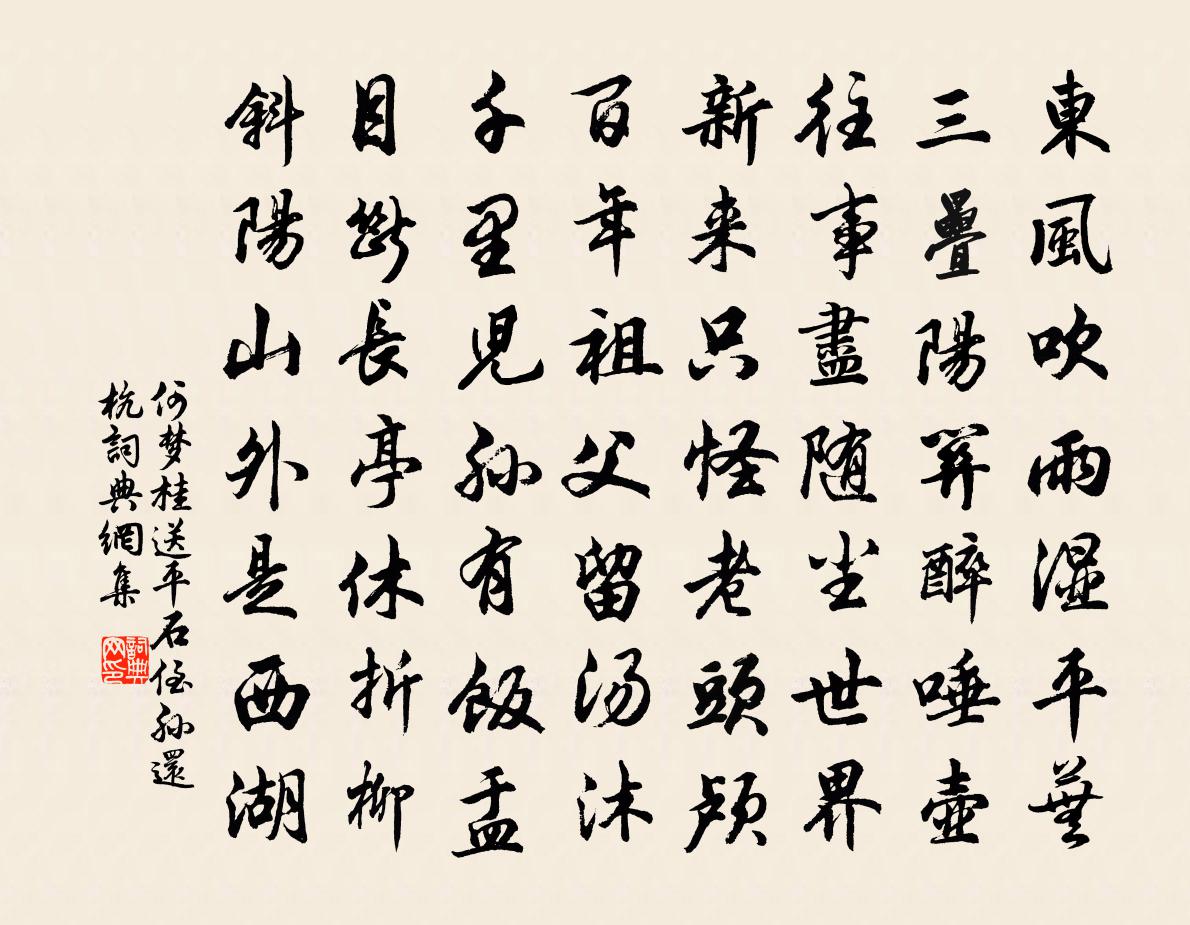 東風吹雨濕平蕪
三疊陽關醉唾壺
往事盡隨塵世界
新来只怪老頭顱
百年祖父留湯沐
千里兒孫有飯盂
目斷長亭休折柳
斜陽山外是西湖
何梦桂送平石侄孙還
杭詞典網集
詞典网印